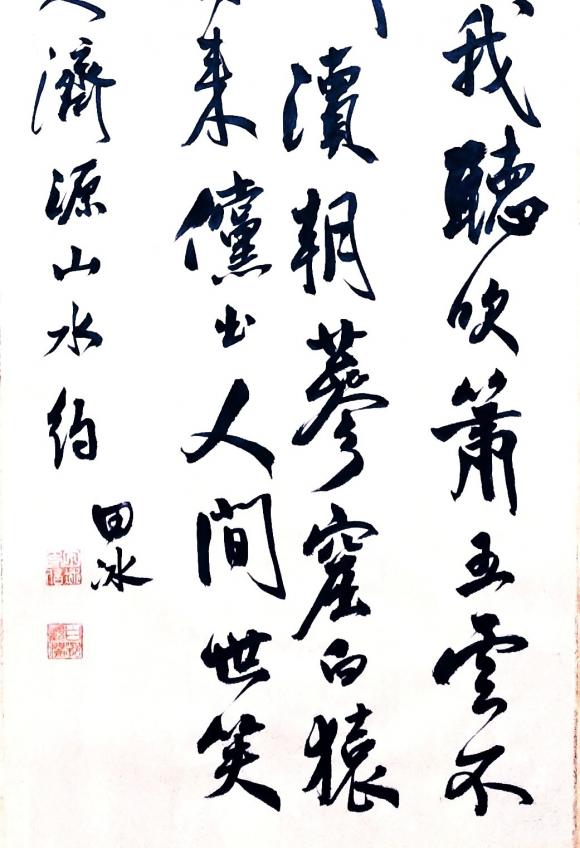 我聽吹簫五雲不
瀆朝蔘窟白猿
来儻出人間世笑
濟源山水約
田冰